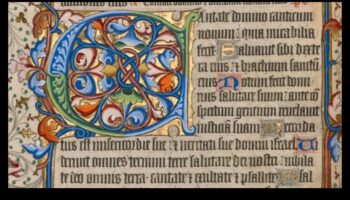 Cantate domino canticum
novum: quia mirabilia
fecit Saluauit sibi dexte
ra eius et brachium sanctū
eius Notum fecit domi
nus salutare suum: ante cō
spectum gentium reuelauit
iusticiam suam Recorda
tus est misericordie sue et ueritati sue domui israel Ui
derunt omnes termini terre salutare dei nostri Iubila
te deo omnis terra cantate et exultate et psallite Psal